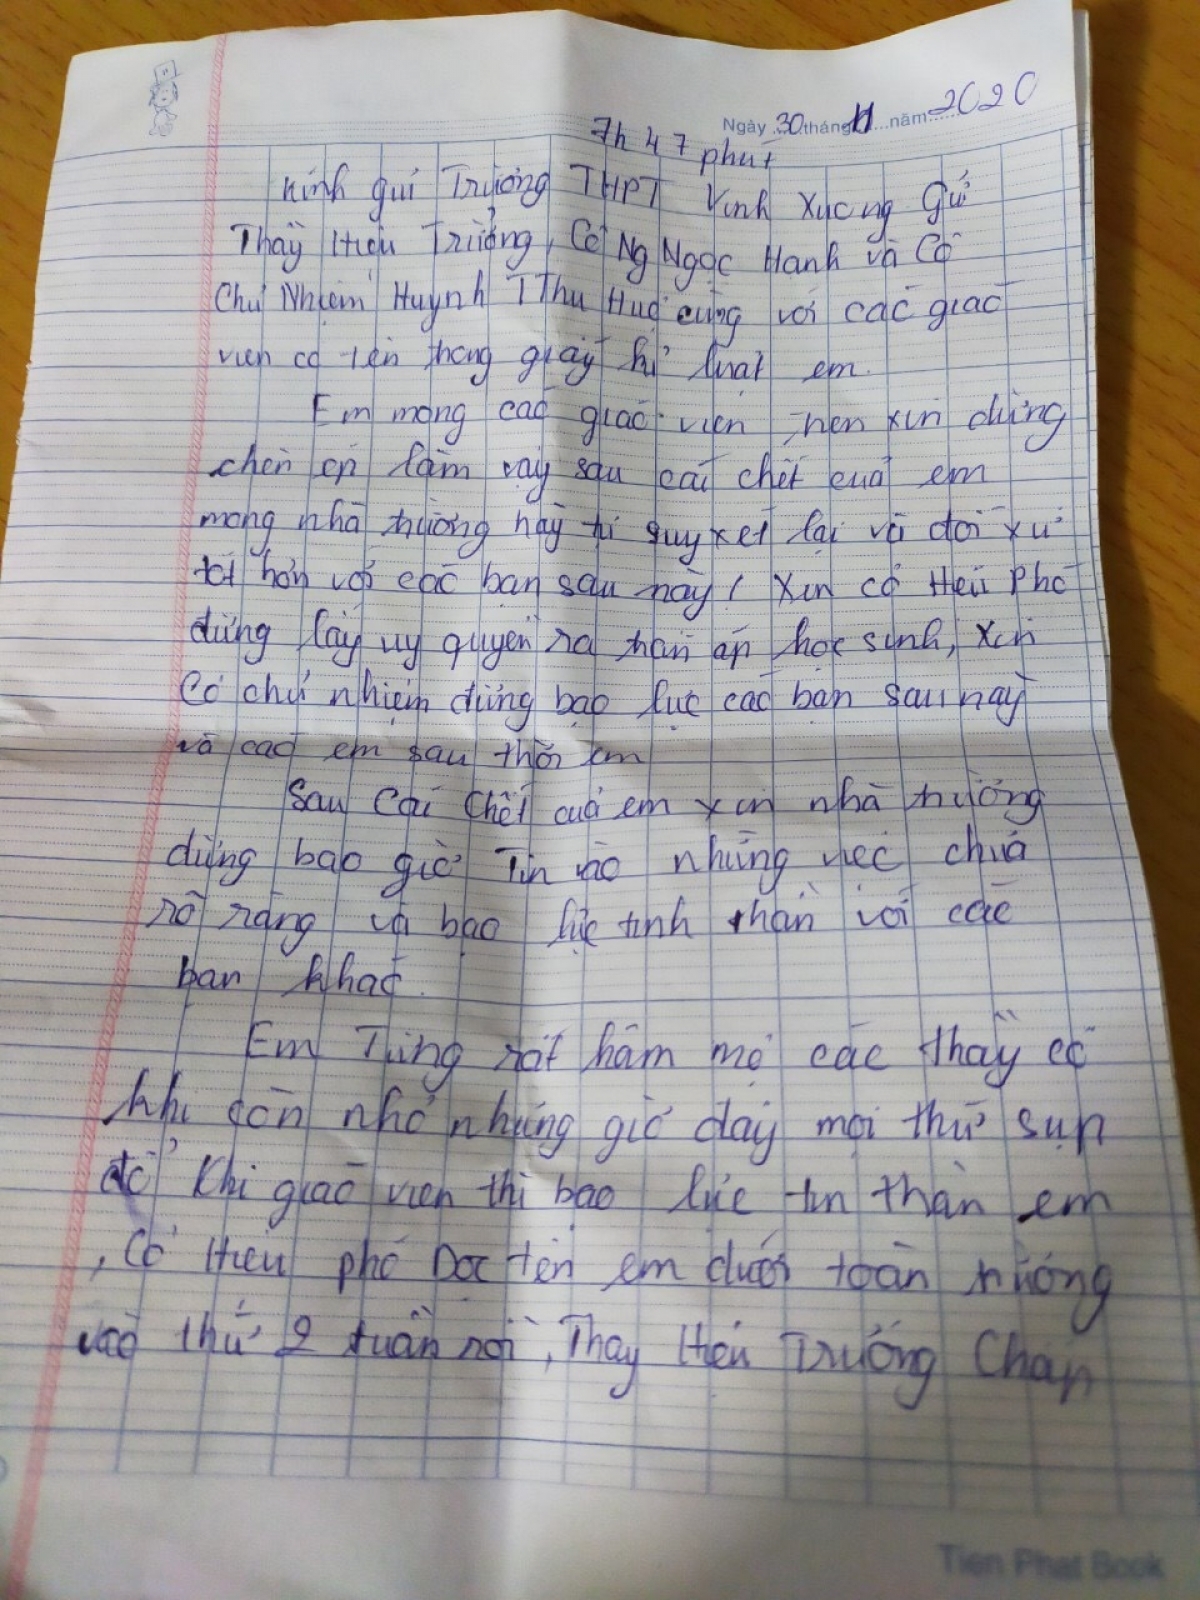 Ngày 30 tháng 11 năm 2020
7h 47 phút
Kính gửi Trường THPT Vĩnh Xương Gửi
Thầy Hiệu Trưởng, Cô Ng Ngọc Hạnh và Cô
Chủ Nhiệm Huỳnh T Thu Huệ cùng với các giáo
viên có tên trong giấy kỉ luật em.
Em mong các giáo viên trên xin dừng
chèn ép làm vậy sau cái chết của em
mong nhà trường hãy tự suy xét lại và đối xử
tốt hơn với các bạn sau này! Xin cô Hiệu Phó
đừng lấy uy quyền ra trấn áp học sinh, xin
Cô chủ nhiệm đừng bạo lực các bạn sau này
và các em sau thời em
Sau Cái Chết của em xin nhà trường
đừng bao giờ Tin vào những việc chưa
rõ ràng và bạo lực tinh thần với các
bạn khác.
Em Từng rất hâm mộ các thầy cô
khi còn nhỏ nhưng giờ đây mọi thứ sụp
đổ Khi giáo viên thì bạo lực tin thần em
, Cô Hiệu phó Đọc tên em dưới toàn trường
vào thứ 2 tuần rồi, Thầy Hiệu Trưởng Chấp
Tien Phat Book